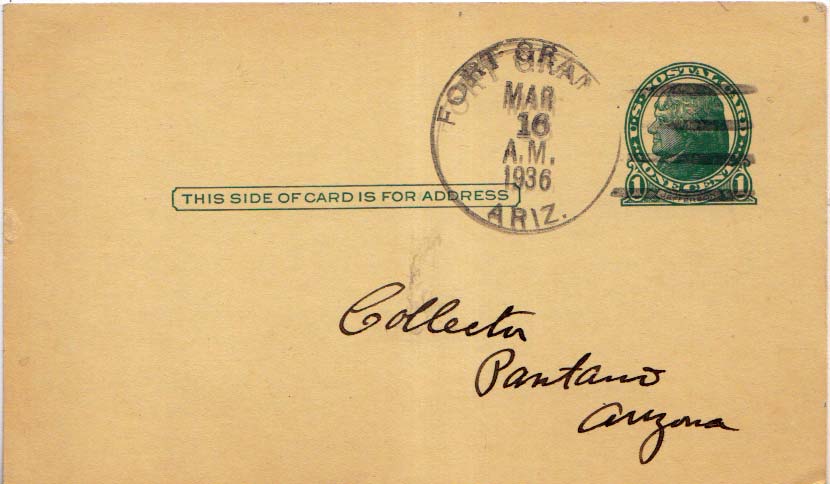 FORT GRAN
MAR
16
A.M.
1936
ARIZ.
U·S·POSTAL CARD
1 ONE CENT 1
JEFFERSON
THIS SIDE OF CARD IS FOR ADDRESS
Collector
Pantano
Arizona